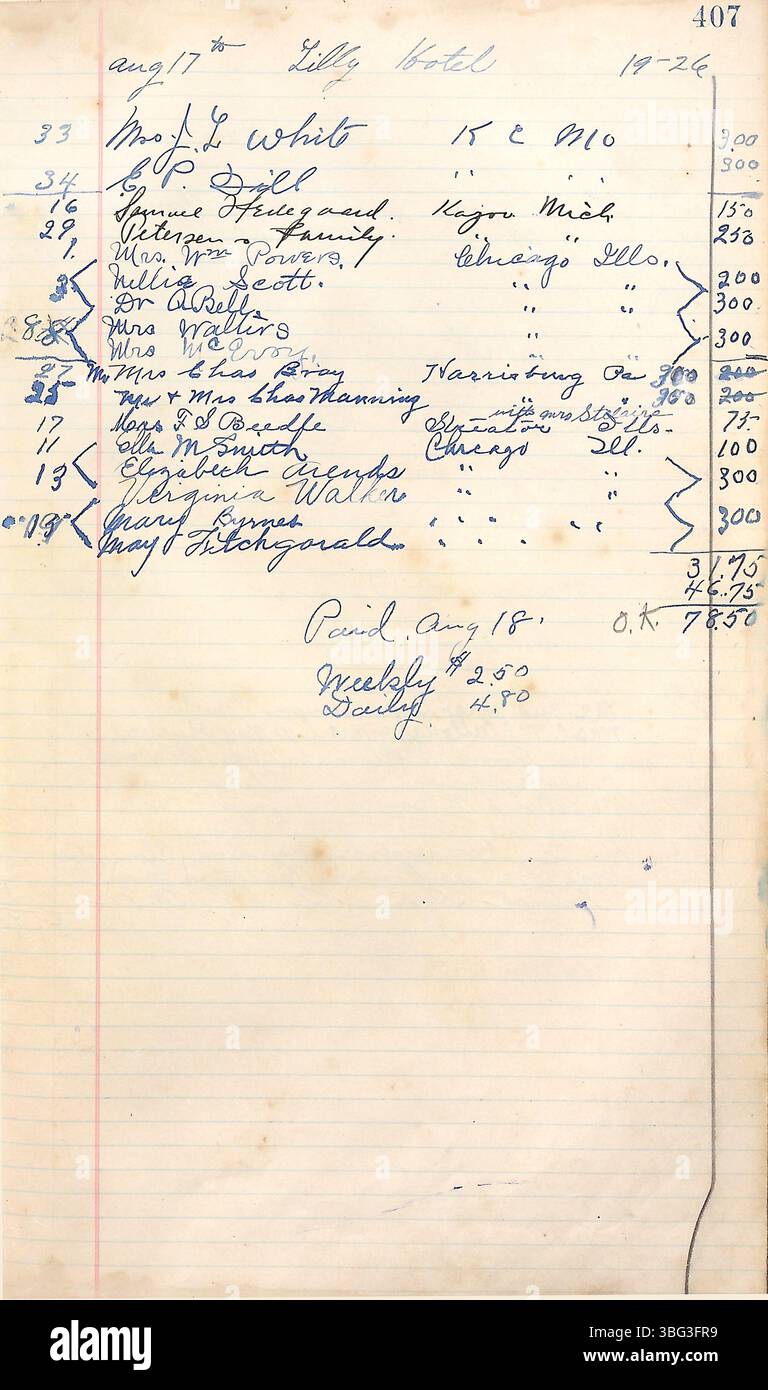 407
Aug 17th Lilly Hotel 19-26
33 Mrs. J. L. White K C Mo 3.00
34 E. P. Dill " " 300
16 Samuel Hedegaard. Mich 150
29 Petersen & Family. " " 250
1. Mrs. Wm Powers. Chicago Ills.
3 Nellie Scott. " " 200
Dr A. Bell " " 300
28 Mrs Walters "
Mrs McEvoy. " 300
27 Mr Mrs Chas Bray Harrisburg Pa 300 200
25 Mr & Mrs Chas Manning " " 350 200
with Mrs
17 Mrs F S Beedle Ills. 75
11 Ella M Smith Chicago Ill. 100
13 Elizabeth Arends " " 300
Virginia Walker " "
19 Mary Byrnes " " " 300
May Fitchgorald " " "
31.75
46.75
Paid Aug 18. O.K. 78.50
Weekly $ 2.50
Daily 4.80
alamy
Image ID: 3BG3FR9
www.alamy.com